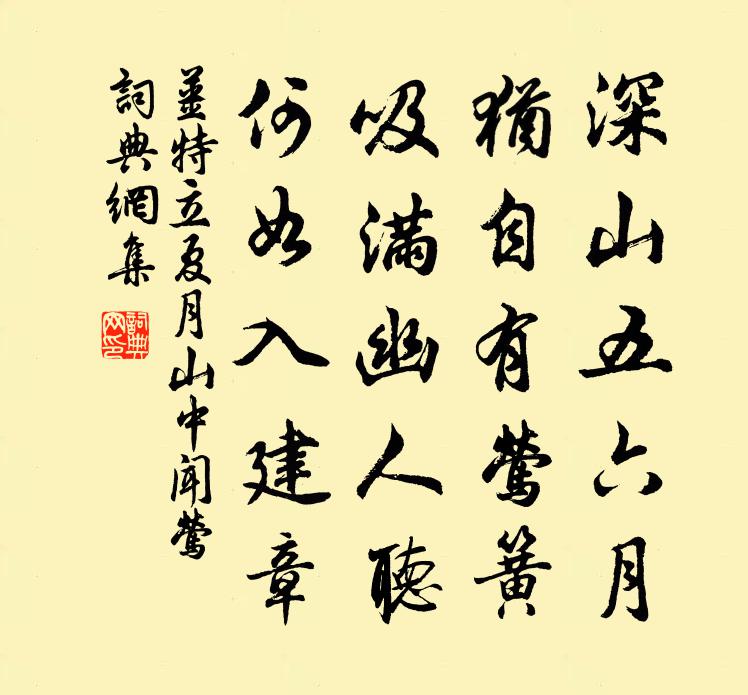 深山五六月
猶自有鶯簧
吸滿幽人聽
何如入建章
薑特立夏月山中聞鶯
詞典網集
詞典网印